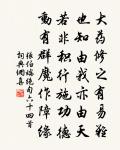 大藥修之有易難
也知由我亦由天
若非積行施功德
動有群魔作障緣
張伯端絕句六十四首
詞典網喜